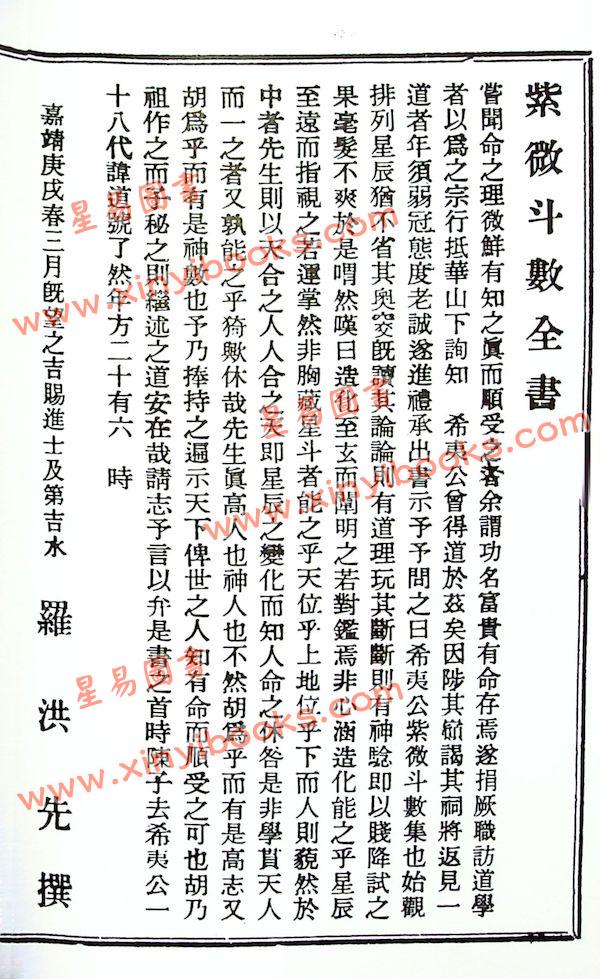 紫微斗數全書
嘗聞命之理微鮮有知之眞而順受之者余謂功名富貴有命存焉遂捐厥職訪道學
者以爲之宗行抵華山下詢知 希夷公曾得道於茲矣因陟其巓謁其祠將返見一
道者年須弱冠態度老誠遂進禮承出書示予予問之曰希夷公紫微斗數集也始觀
排列星辰猶不省其奧窔旣讀其論論則有道理玩其斷斷則有神驗即以賤降試之
果毫髮不爽於是喟然嘆曰造化至玄而闡明之若對鑑焉非心涵造化能之乎星辰
至遠而指視之若運掌然非胸藏星斗者能之乎天位乎上地位乎下而人則藐然於
中者先生則以天合之人人合之天即星辰之變化而知人命之休咎是非學貫天人
而一之者又孰能之乎猗歟休哉先生眞高人也神人也不然胡爲乎而有是高志又
胡爲乎而有是神數也予乃捧持之遍示天下俾世之人知有命而順受之可也胡乃
祖作之而子秘之則繼述之道安在哉請志予言以弁是書之首時陳子去希夷公一
十八代諱道號了然年方二十有六 時
嘉靖庚戌春三月旣望之吉賜進士及第吉水 羅洪先撰
星易圖書
www.xinyibooks.com
星易圖書
www.xinyibooks.com
星易圖書
www.xinyibooks.com